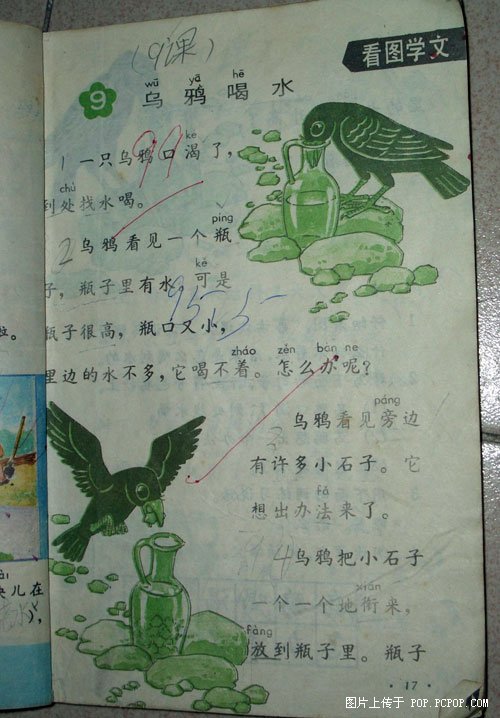 (9课)
看图学文
9
wū yā hē
乌鸦喝水
kě
1 一只乌鸦口渴了,
chù
到处找水喝。
99
píng
2 乌鸦看见一个瓶
kě
子,瓶子里有水,可是
95.5
瓶子很高,瓶口又小,
zháo zěn bàn ne
里边的水不多,它喝不着。怎么办呢?
páng
3 乌鸦看见旁边
有许多小石子。它
fǎ
想出办法来了。
4 乌鸦把小石子
xián
一个一个地衔来,
fàng
放到瓶子里。瓶子
·17·
儿在
图片上传于 POP.PCPOP.COM